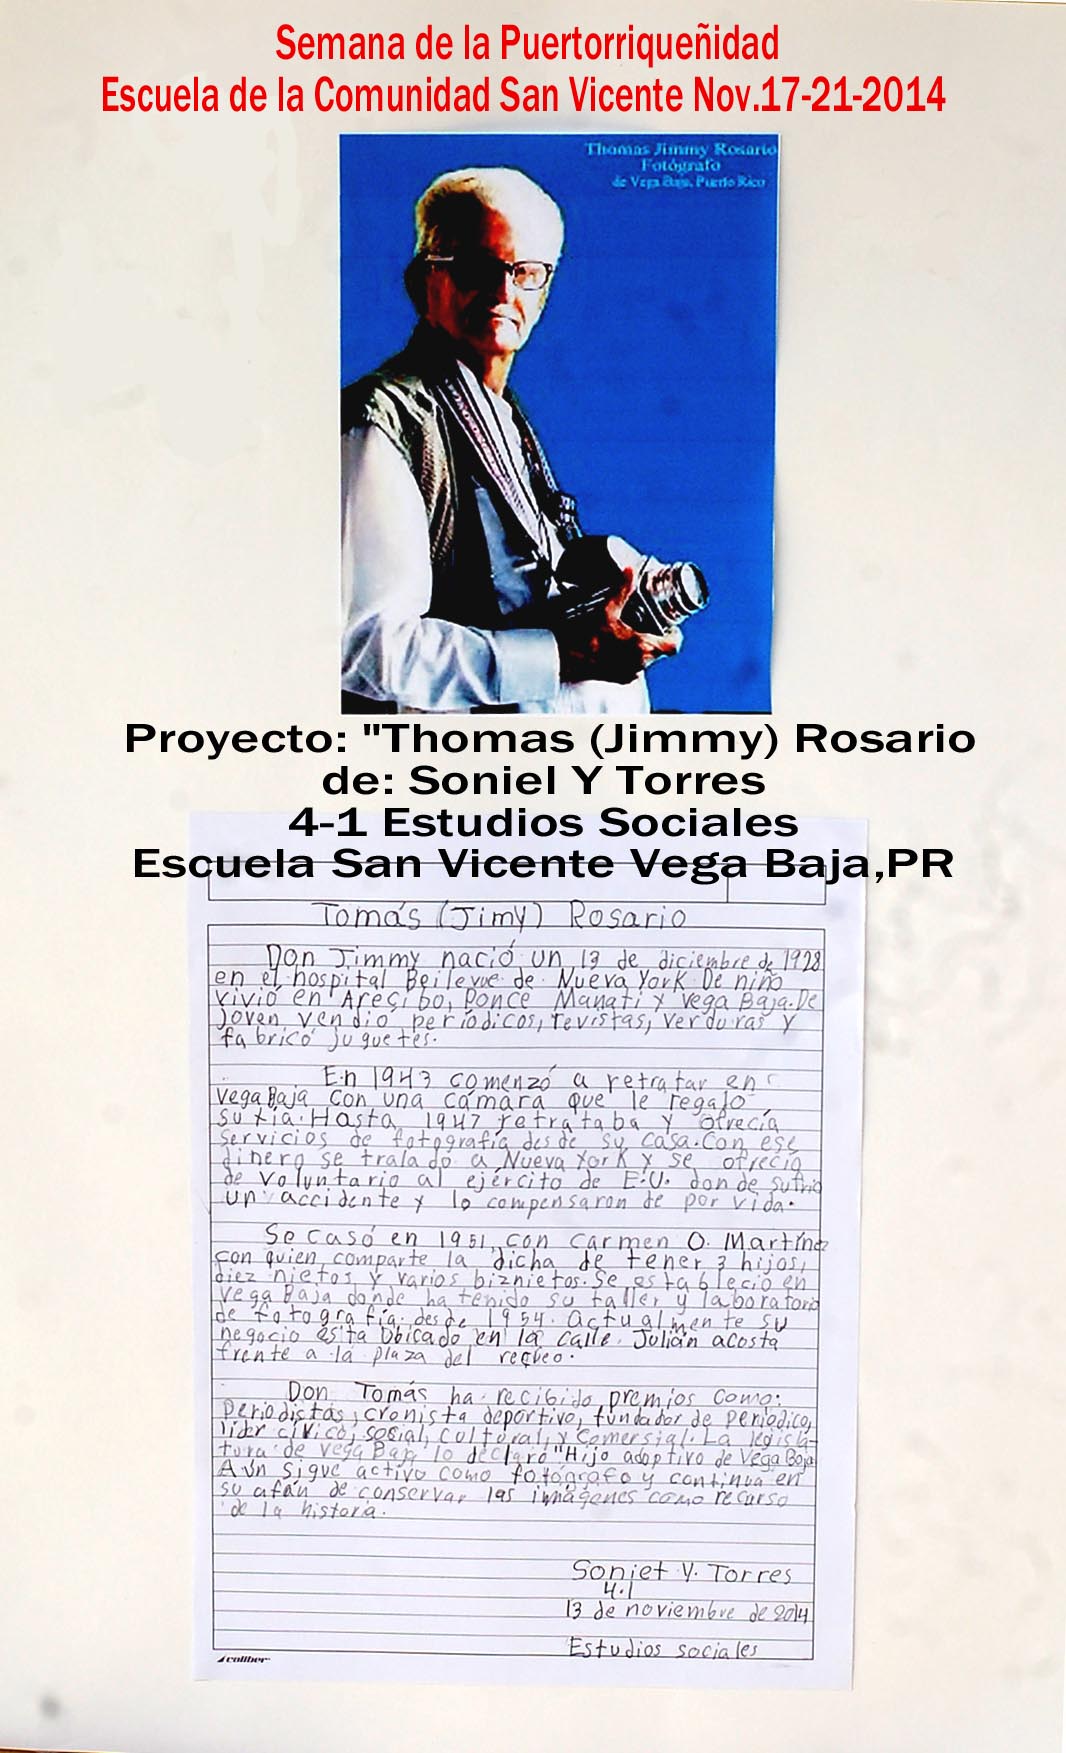 Semana de la Puertorriqueñidad
Escuela de la Comunidad San Vicente Nov.17-21-2014
Thomas Jimmy Rosario
Fotógrafo
de Vega Baja, Puerto Rico
Proyecto: "Thomas (Jimmy) Rosario
de: Soniel Y Torres
4-1 Estudios Sociales
Escuela San Vicente Vega Baja,PR
Tomás (Jimy) Rosario
Don Jimmy nació un 13 de diciembre de 1928
en el hospital Beilevue de Nueva York De niño
vivió en Arecibo, Ponce Manatí y Vega Baja. De
joven vendió periódicos, revistas, verduras y
fabricó juguetes.
En 1943 comenzó a retratar en
Vega Baja con una cámara que le regaló
su tía. Hasta 1947 retrataba y ofrecía
servicios de fotografía desde su casa. Con ese
dinero se traladó a Nueva York y se ofreció
de voluntario al ejército de E.U. donde sufrió
un accidente y lo compensaron de por vida.
Se casó en 1951, con Carmen O. Martínez
con quien comparte la dicha de tener 3 hijos,
diez nietos y varios biznietos. Se estableció en
Vega Baja donde ha tenido su taller y laboratorio
de fotografía desde 1954. Actualmente su
negocio esta Ubicado en la calle Julián acosta
frente a la plaza del recreo.
Don Tomás ha recibido premios como:
periodistas, cronista deportivo, fundador de periodico,
lider cívico, social, cultural, y comersial. La legisla-
tura de Vega Baja lo declaró "Hijo adoptivo de Vega Baja
Aún sigue activo como fotógrafo y continua en
su afán de conservar las imágenes como recurso
de la historia.
Soniel Y. Torres
4.1
13 de noviembre de 2014
Estudios sociales
caliber